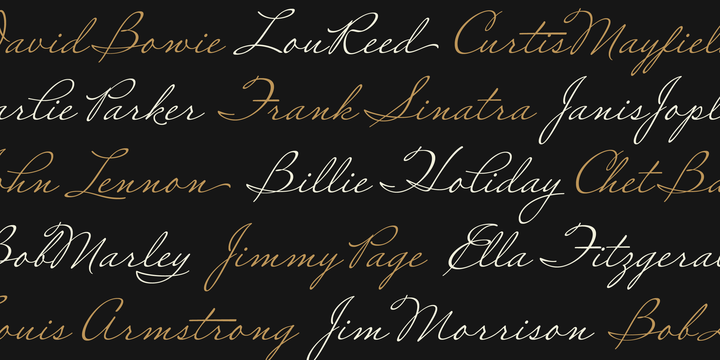 David Bowie Lou Reed Curtis Mayfiel
arlie Parker Frank Sinatra Janis Jopl
ohn Lennon Billie Holiday Chet Ba
Bob Marley Jimmy Page Ella Fitzgeral
ouis Armstrong Jim Morrison Bob